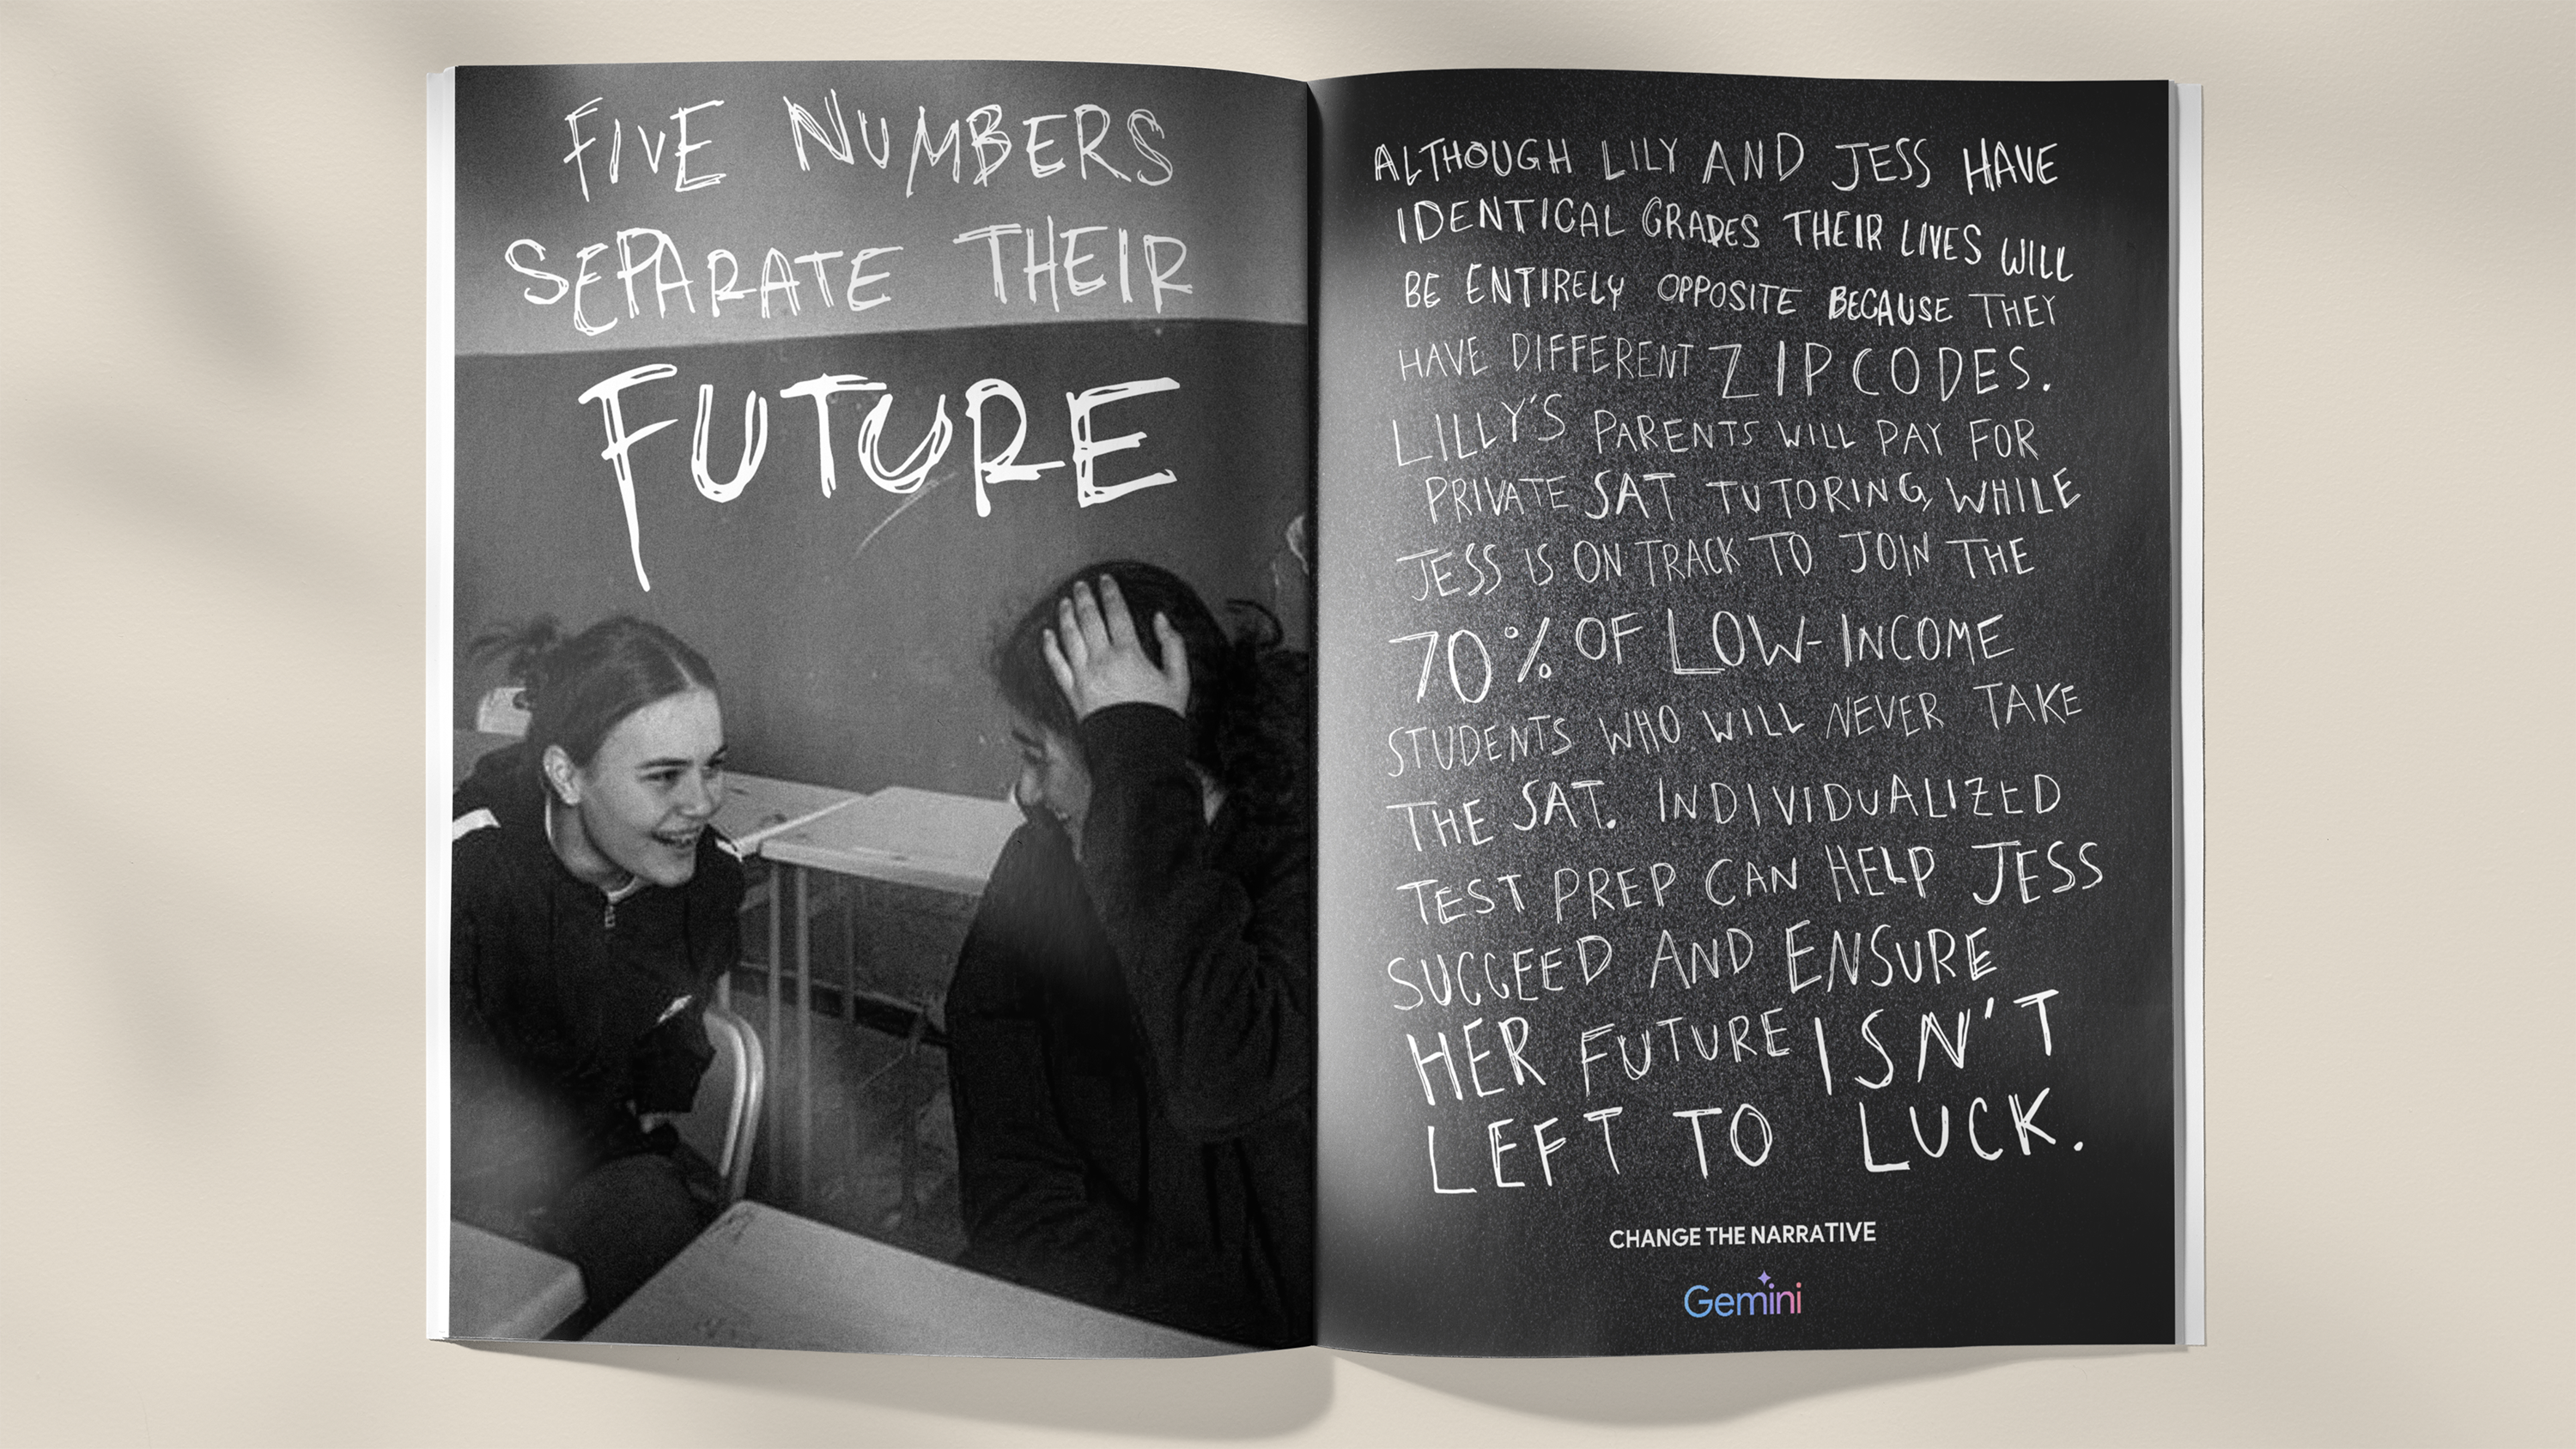 FIVE NUMBERS
SEPARATE THEIR
FUTURE
ALTHOUGH LILY AND JESS HAVE
IDENTICAL GRADES THEIR LIVES WILL
BE ENTIRELY OPPOSITE BECAUSE THEY
HAVE DIFFERENT ZIPCODES.
LILLY'S PARENTS WILL PAY FOR
PRIVATE SAT TUTORING, WHILE
JESS IS ON TRACK TO JOIN THE
70% OF LOW-INCOME
STUDENTS WHO WILL NEVER TAKE
THE SAT. INDIVIDUALIZED
TEST PREP CAN HELP JESS
SUCCEED AND ENSURE
HER FUTURE ISN'T
LEFT TO LUCK.
CHANGE THE NARRATIVE
Gemini